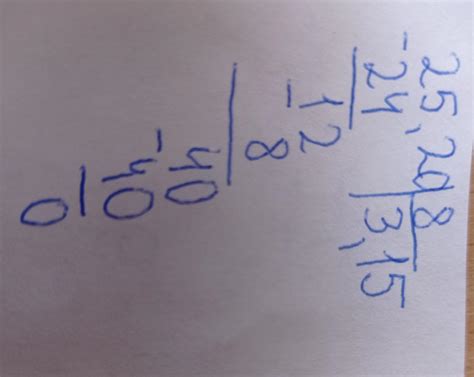 25,20|8
-24 3,15
-12
8
40
-40
0